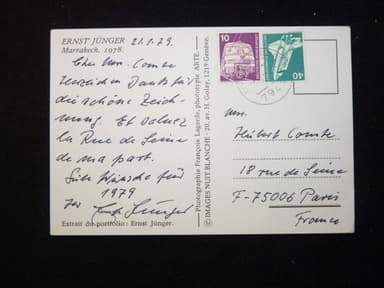 ERNST JÜNGER 21.1.79.
Marrakech, 1978.
Cher Mr. Comte
Herzlichen Dank für
die schöne Zeich-
nung. Et saluez
la Rue de Seine
de ma part.
Gute Wünsche für
1979
Ihr Ernst Jünger
Extrait du portfolio : Ernst Jünger.
Photographie François Lagarde, phototypie ARTE.
© IMAGES NUIT BLANCHE - 20, av. H. Golay, 1219 Genève.
10
40
Mr.
Hubert Comte
18 rue de Seine
F-75006 Paris
France